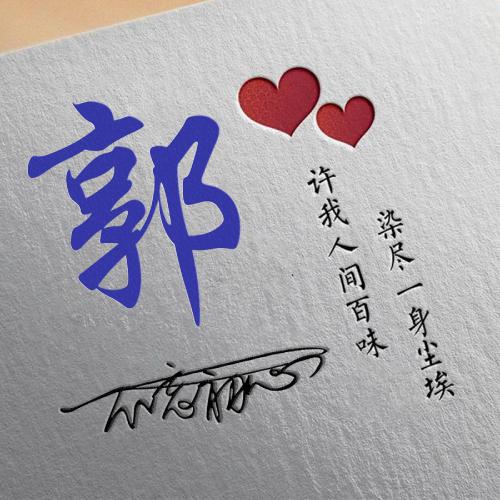 郭
许我人间百味
染尽一身尘埃